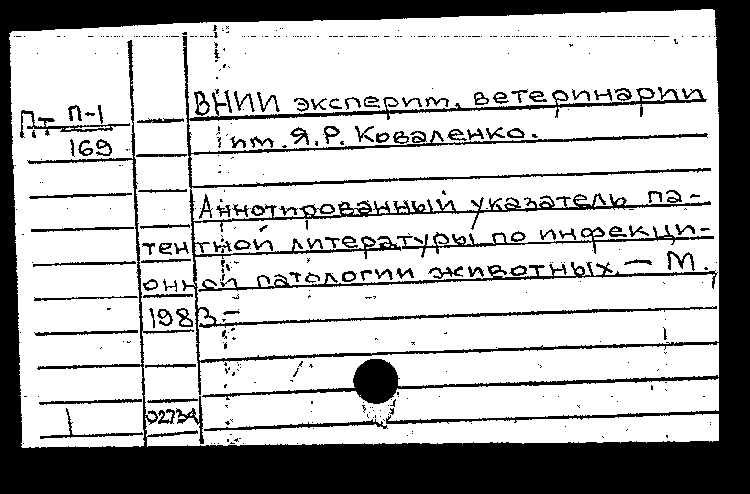 Пт П-1
169
ВНИИ эксперим. ветеринарии
им. Я.Р. Коваленко.
Аннотированный указатель па-
тентной литературы по инфекци-
онной патологии животных. — М.,
1983.-
02734